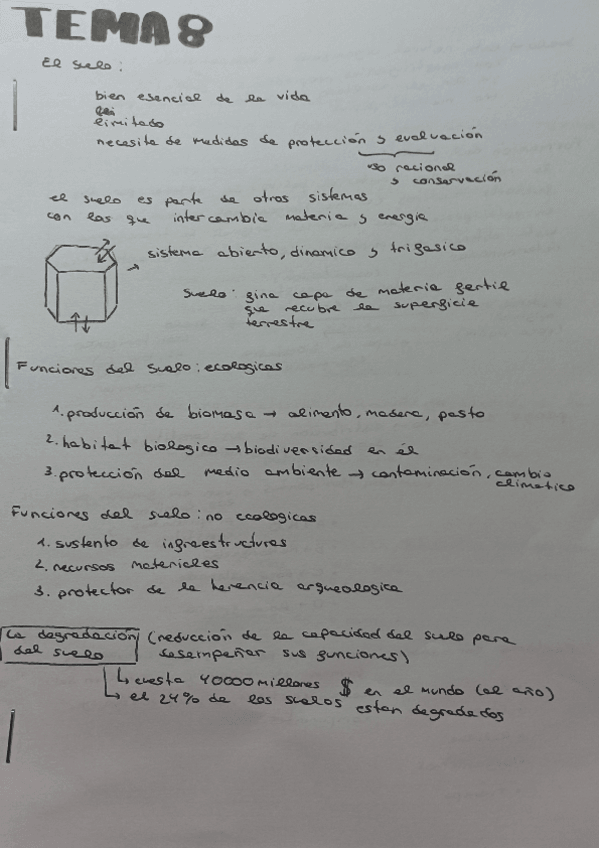 TEMA 8
El suelo:
bien esencial de la vida
limitado
necesita de medidas de protección y evaluación
uso racional
y conservación
el suelo es parte de otros sistemas
con los que intercambia materia y energia
sistema abierto, dinamico y trifasico
suelo: fina capa de materia fertil
que recubre la superficie
terrestre
Funciones del suelo: ecologicas
1. producción de biomasa → alimento, madera, pasto
2. habitat biologico → biodiversidad en él
3. protección del medio ambiente → contaminación, cambio
climatico
Funciones del suelo: no ecologicas
1. sustento de infraestructuras
2. recursos materiales
3. protector de la herencia arqueologica
La degradación (reducción de la capacidad del suelo para
del suelo desempeñar sus funciones)
↳ cuesta 40000 millones $ en el mundo (al año)
↳ el 24% de los suelos estan degradados